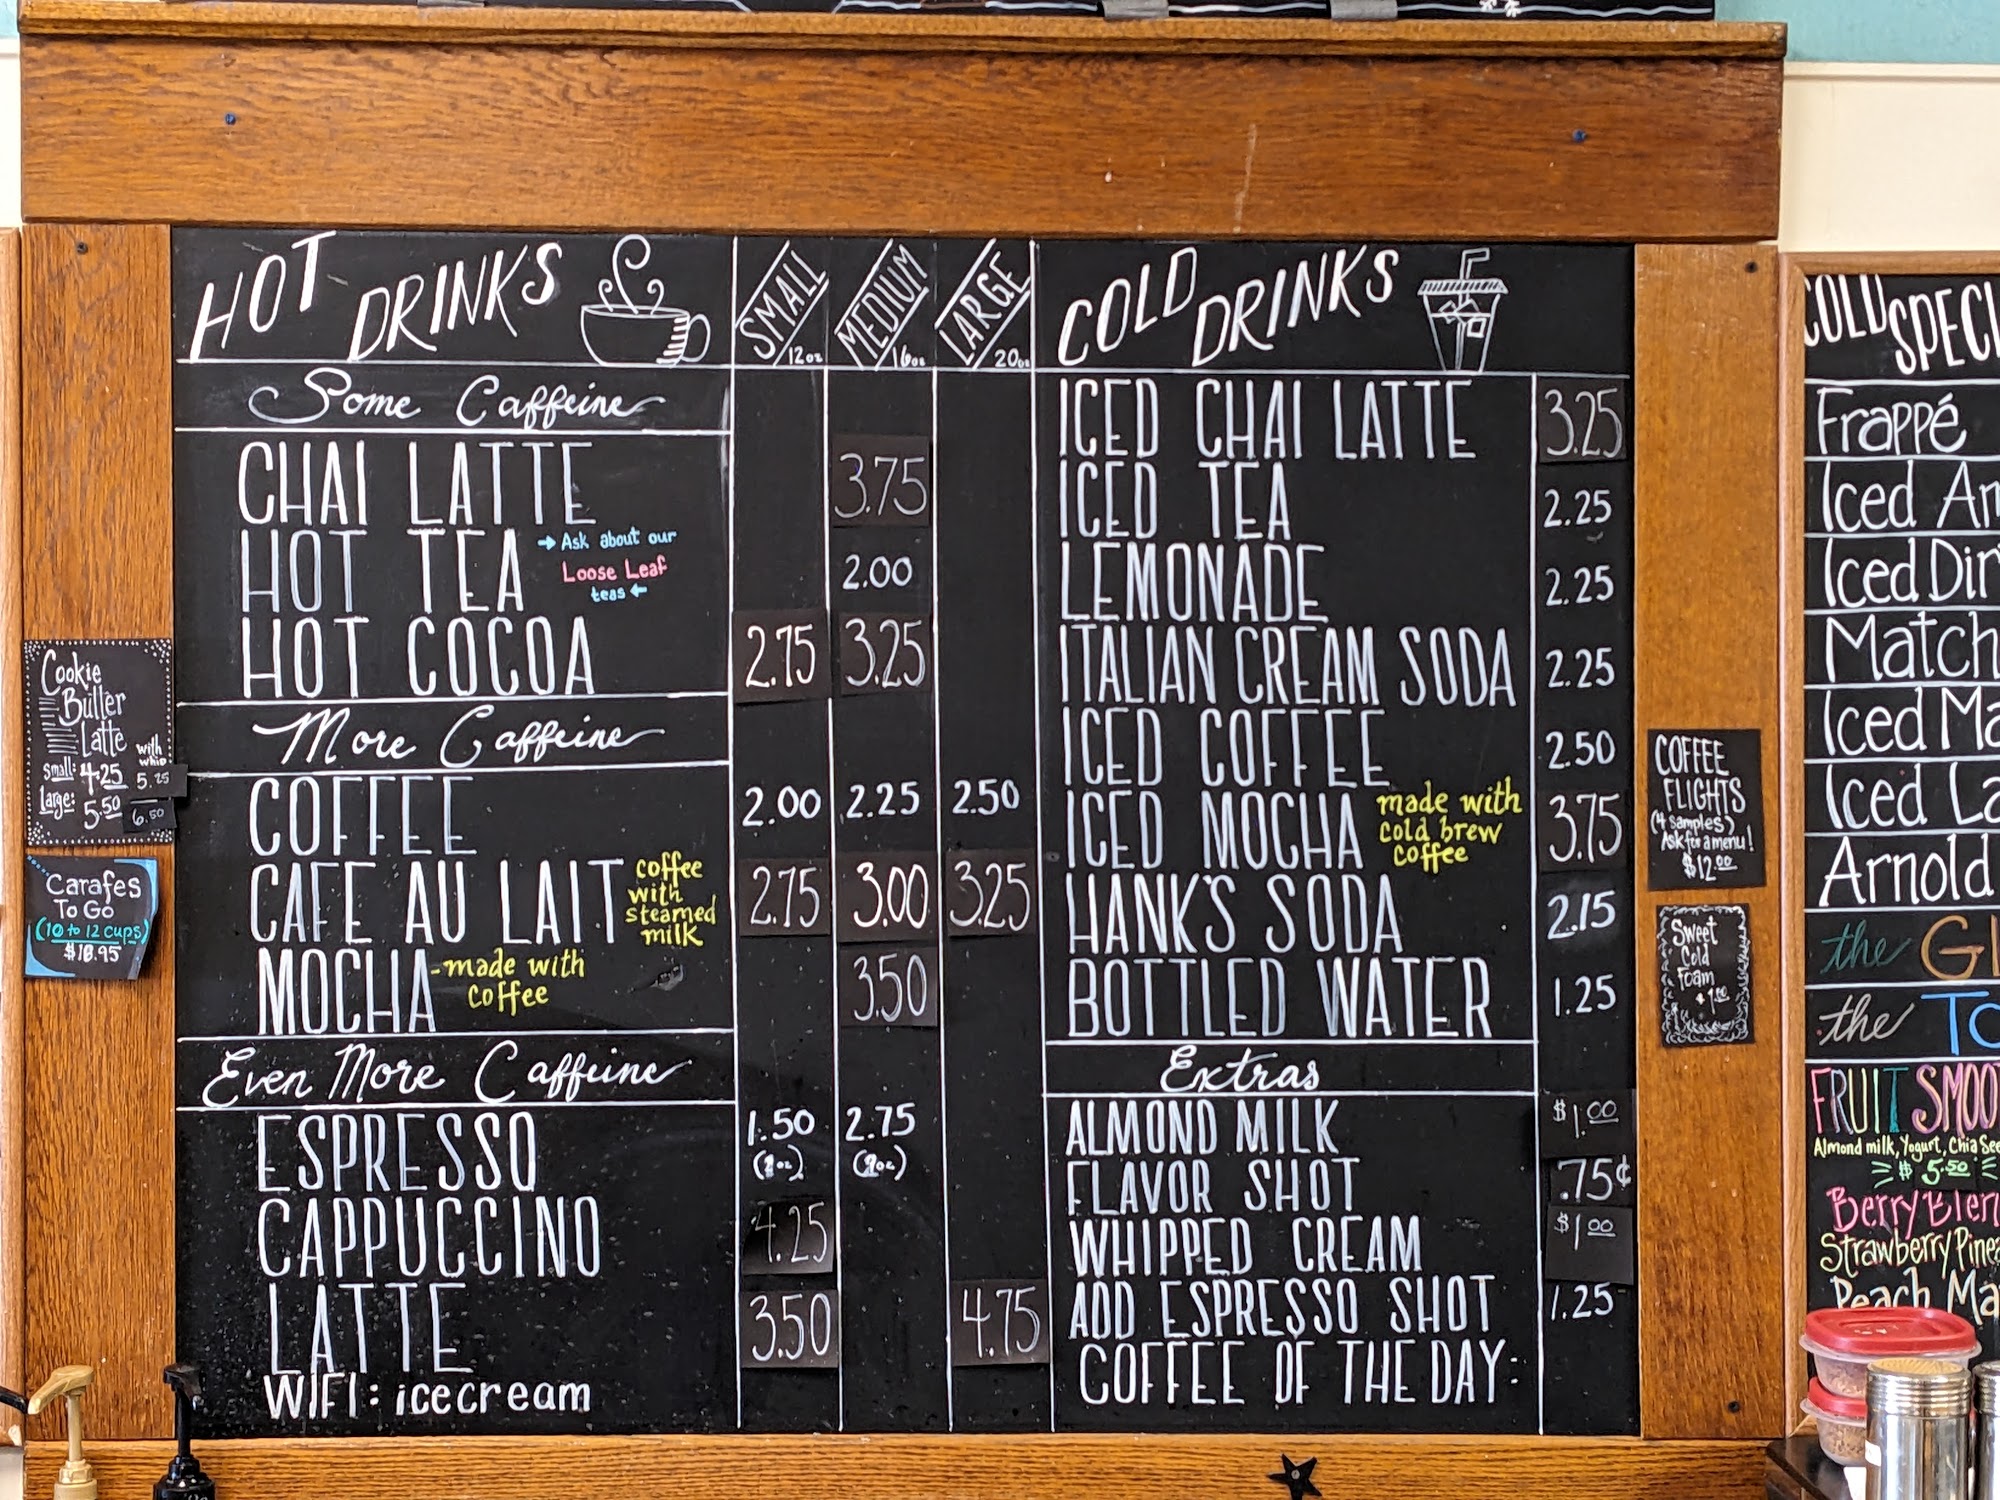 HOT DRINKS
SMALL 12oz
MEDIUM 16oz
LARGE 20oz
Some Caffeine
CHAI LATTE 3.75
HOT TEA → Ask about our Loose Leaf teas ← 2.00
HOT COCOA 2.75 3.25
More Caffeine
COFFEE 2.00 2.25 2.50
CAFE AU LAIT coffee with steamed milk 2.75 3.00 3.25
MOCHA - made with coffee 3.50
Even More Caffeine
ESPRESSO 1.50 2.75
CAPPUCCINO 4.25
LATTE 3.50 4.75
WIFI: icecream
COLD DRINKS
ICED CHAI LATTE 3.25
ICED TEA 2.25
LEMONADE 2.25
ITALIAN CREAM SODA 2.25
ICED COFFEE 2.50
ICED MOCHA made with cold brew coffee 3.75
HANK'S SODA 2.15
BOTTLED WATER 1.25
Extras
ALMOND MILK $1.00
FLAVOR SHOT .75¢
WHIPPED CREAM $1.00
ADD ESPRESSO SHOT 1.25
COFFEE OF THE DAY:
Cookie
Butter
Latte
with whip
small: 4.25 5.25
Large: 5.50 6.50
Carafes
To Go
(10 to 12 cups)
COFFEE
FLIGHTS
(4 samples)
Ask for a menu!
$12.00
Sweet
Cold
Foam
$1.00
COLD SPECI
Frappé
Iced Am
Iced Dir
Matc
Iced Ma
Iced La
Arnold
the Gl
the To
FRUIT SMOO
Almond milk, Yogurt, Chia See
$5.50
Berry Blen
Strawberry Pinea
Peach Ma